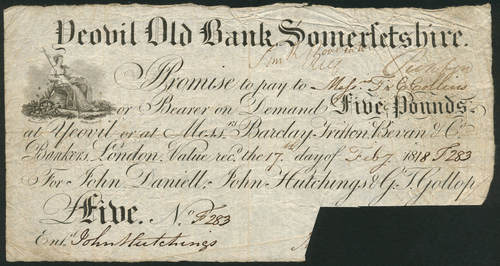 Yeovil Old Bank Somersetshire.
I Promise to pay to Messrs. T & C Collins
or Bearer on Demand Five Pounds.
at Yeovil or at Messrs. Barclay Tritton Bevan & Co.
Bankers, London. Value recd. the 17th day of Feby. 1818 F283
For John Daniell, John Hutchings & G. T. Gollop
£Five. No. F283
Entd. John Hutchings